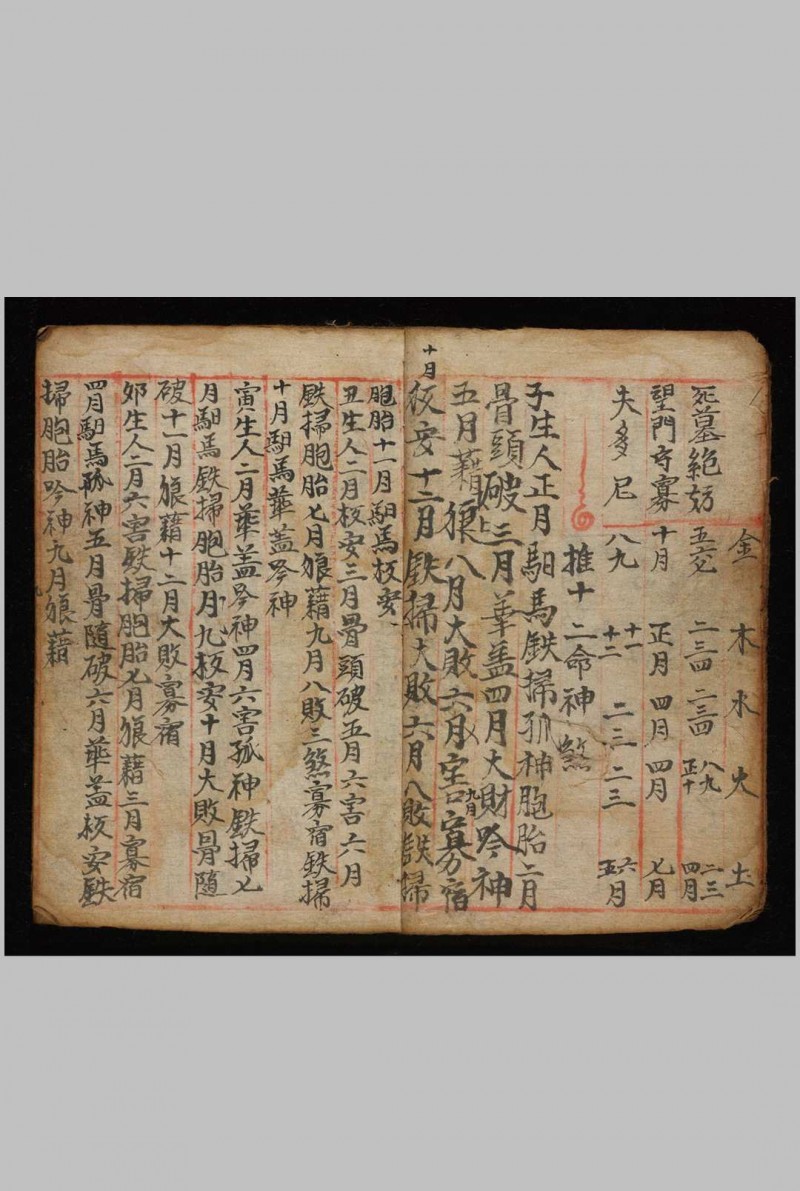 金 木 水 火 土
死墓絶妨 五六 二三四 二三四 八九 正十 二三 四月
望門守寡 十月 正月 四月 四月 七月
夫多尼 八九 十一 十二 二三 二三 六 五月
推十二命神煞
子生人正月馹馬鉄掃孤神胞胎二月
骨頭破三月華盖四月大財吟神
五月藉狼上八月大敗六月害九月寡宿
十月
板安十二月鉄掃大敗六月八敗鉄掃
胞胎十一月馹馬板安
丑生人二月板安三月骨頭破五月六害六月
鉄掃胞胎七月狼藉九月八敗三煞寡宿鉄掃
十月馹馬華盖吟神
寅生人二月華盖吟神四月六害孤神鉄掃七
月馹馬鉄掃胞胎月九板安十月大敗骨随
破十一月狼藉十二月大敗寡宿
夘生人二月六害鉄掃胞胎七月狼藉三月寡宿
四月馹馬孤神五月骨随破六月華盖板安鉄
掃胞胎吟神九月狼藉